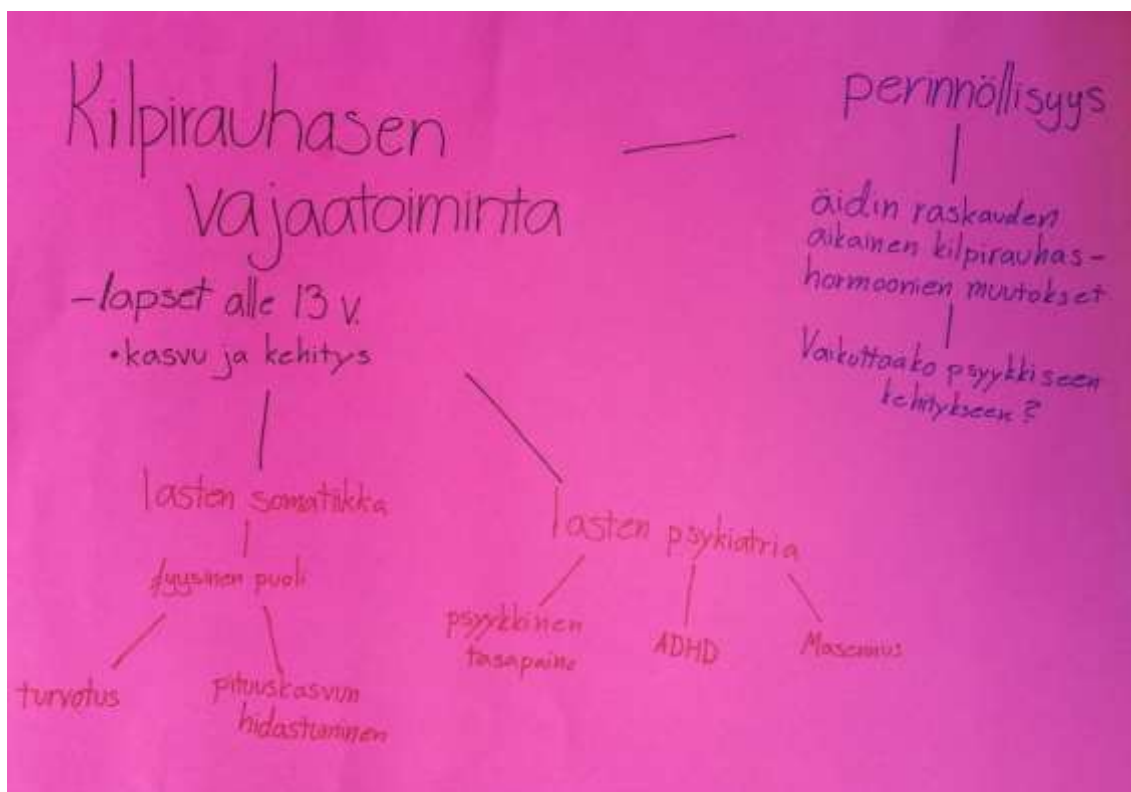 Kilpirauhasen
vajaatoiminta
-lapset alle 13 v.
•kasvu ja kehitys
perinnöllisyys
äidin raskauden
aikainen kilpirauhas-
hormoonien muutokset
Vaikuttaako psyykkiseen
kehitykseen?
lasten somatiikka
fyysinen puoli
turvotus
pituuskasvun
hidastuminen
lasten psykiatria
psyykkinen
tasapaino
ADHD
Masennus